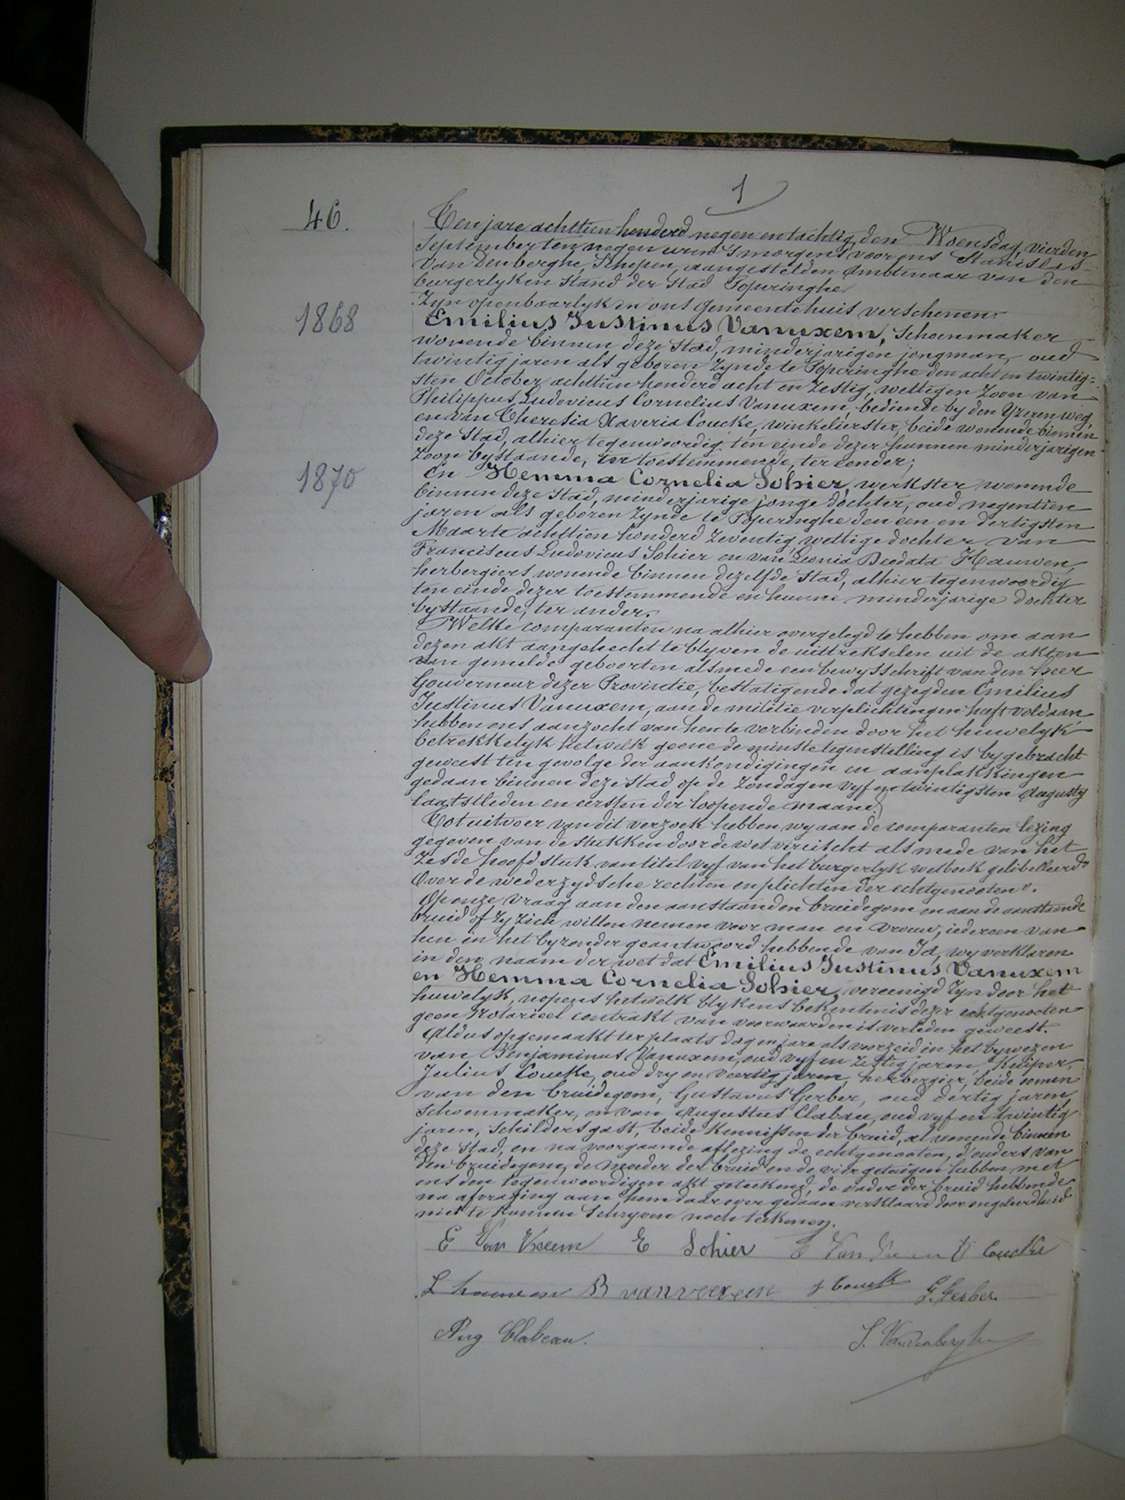 1
46.
Ten jare achttien honderd negen en tachtig, den Woensdag, vierden
September ten negen uren 's morgens voor ons Stanislas
Van den berghe, Schepen, aangestelden Ambtenaar van den
burgerlyken Stand der Stad Poperinghe
Zyn openbaarlyk in ons Gemeentehuis verschenen
1868
Emilius Justinus Vanuxem, Schoenmaker
wonende binnen deze Stad, minderjarigen jongman, oud
twintig jaren als geboren zynde te Poperinghe den acht en twintig-
sten October achttien honderd acht en zestig, wettigen zoon van
Philippus Ludovicus Cornelius Vanuxem, bediende by den Yzeren weg
en van Theresia Xaveria Coucke, winkelierster, beide wonende binnen
deze Stad, alhier tegenwoordig ten einde dezer hunnen minderjarigen
zoon bystaande, ter toestemmende, ter eender;
1870
En Hemma Cornelia Sohier, werkster wonende
binnen deze Stad, minderjarige jonge dochter, oud negentien
jaren als geboren zynde te Poperinghe den een en dertigsten
Maarte achttien honderd zeventig wettige dochter van
Franciscus Ludovicus Sohier en van Leonia Deodata Hauwen,
herbergiers wonende binnen dezelfde Stad, alhier tegenwoordig
ten einde dezer toestemmende en hunne minderjarige dochter
bystaande, ter ander.
Welke comparanten na alhier overgelegd te hebben om aan
dezen akt aangehecht te blyven de uittrekselen uit de akten
van gemelde geboorten alsmede een bewysschrift van den heer
Gouverneur dezer Provintie, bestatigende dat gezegden Emilius
Justinus Vanuxem, aan de militie verplichtingen heeft voldaan
hebben ons aanzocht van hen te verbinden door het huwelyk
betrekkelyk hetwelk geene de minste tegenstelling is bygebracht
geweest ten gevolge der aankondigingen en aanplakkingen
gedaan binnen deze Stad op de Zondagen vyf en twintigsten Augusty
laatstleden en eersten der loopende maand
Tot uitvoer van dit verzoek hebben wy aan de comparanten lezing
gegeven van de stukken door de wet vereischt als mede van het
zesde hoofdstuk van titel vyf van het burgerlyk wetboek gelibelleerd
Over de wederzydsche rechten en plichten der echtgenooten.
Op onze vraag aan den aanstaanden bruidegom en aan de aanstaande
bruid of zy zich willen nemen voor man en vrouw, iedereen van
hen in het byzonder geantwoord hebbende van Ja, wy verklaren
in den naam der wet dat Emilius Justinus Vanuxem
en Hemma Cornelia Sohier, vereenigd zyn door het
huwelyk, nopens hetwelk blykens bekentenis dezer echtgenooten
geen Notarieel contrakt van voorwaarden is verleden geweest.
Aldus opgemaakt ter plaats dag en jare als voorzeid in het bywezen
van Benjaminus Vanuxem, oud vyf en zestig jaren,
Julius Coucke, oud dry en veertig jaren, herbergier, beide
van den bruidegom, Gustavus Gerber, oud dertig jaren
Schoenmaker, en van Augustus Clabau, oud vyf en twintig
jaren, Schildersgast, beide kennissen der bruid, al wonende binnen
deze Stad, en na voorgaande aflezing de echtgenooten, d'ouders van
den bruidegom, de moeder der bruid en de vier getuigen hebben met
ons den tegenwoordigen akt geteekend, de vader der bruid hebbende
na afvraging aan hem daarover gedaan verklaard door ongeleerdheid
niet te kunnen schryven noch teekenen.
E Sohier Coucke
B vanuxeem J Coucke G. Gerber
Aug Clabeau. S. Vandenberghe